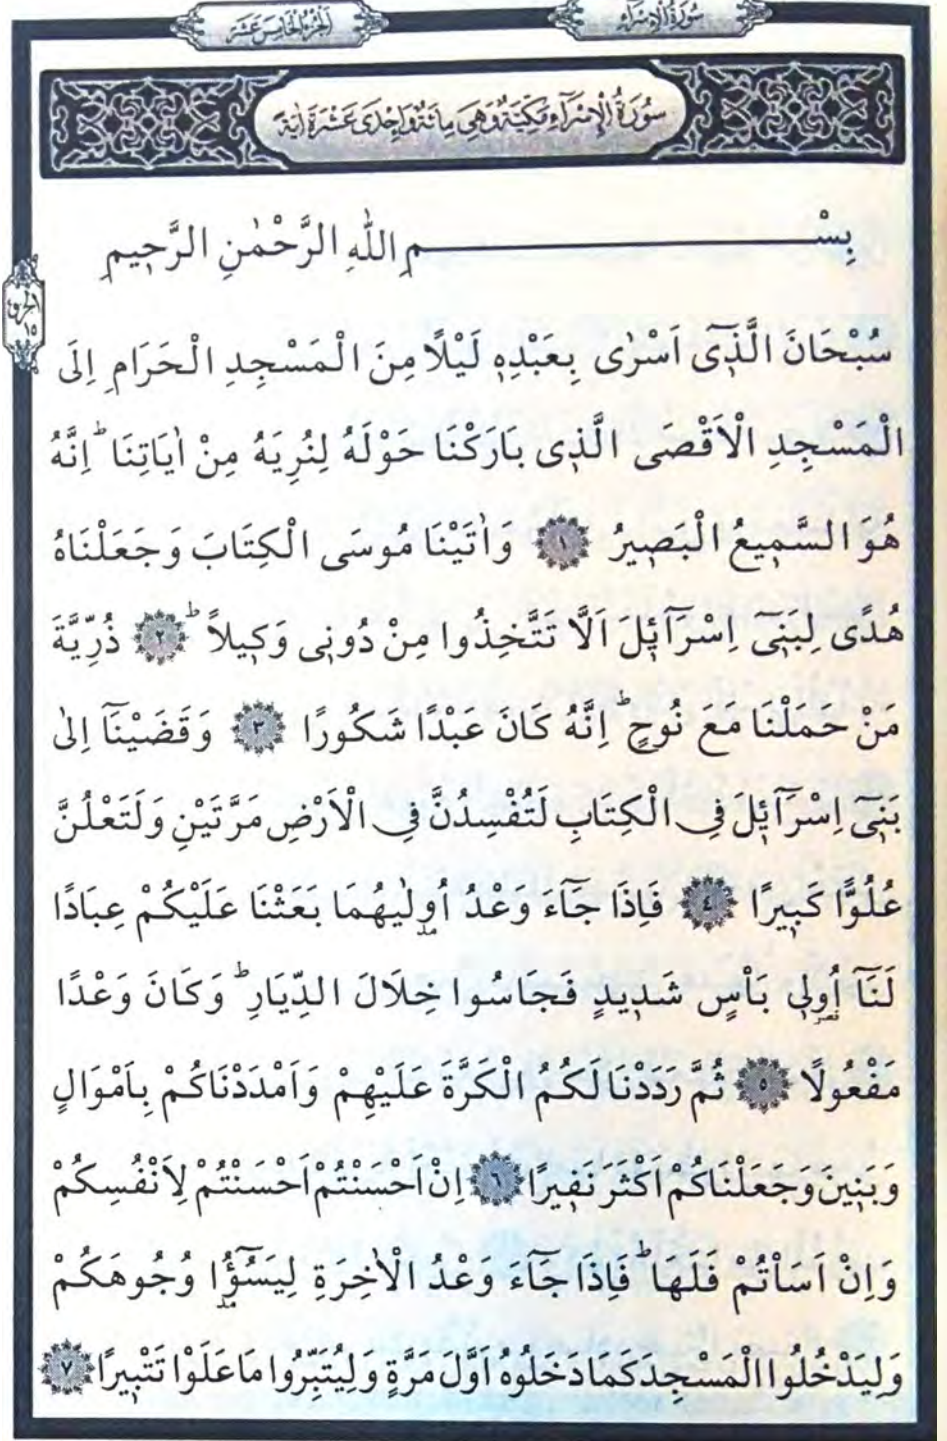 سُورَةُ الْإِسْرَاءِ
اَلْجُزْءُ الْخَامِسَ عَشَرَ
سُورَةُ الْاِسْرَآءِ مَكِّيَّةٌ وَهِيَ مِائَةٌ وَاِحْدٰى عَشْرَةَ اٰيَةً
بِسْـــــــــــــمِ اللّٰهِ الرَّحْمٰنِ الرَّحٖيمِ
الجزء
١٥
سُبْحَانَ الَّذٖٓى اَسْرٰى بِعَبْدِهٖ لَيْلًا مِنَ الْمَسْجِدِ الْحَرَامِ اِلَى
الْمَسْجِدِ الْاَقْصَى الَّذٖى بَارَكْنَا حَوْلَهُ لِنُرِيَهُ مِنْ اٰيَاتِنَاؕ اِنَّهُ
هُوَ السَّمٖيعُ الْبَصٖيرُ ١ وَاٰتَيْنَا مُوسَى الْكِتَابَ وَجَعَلْنَاهُ
هُدًى لِبَنٖٓى اِسْرَٓائٖلَ اَلَّا تَتَّخِذُوا مِنْ دُونٖى وَكٖيلاًؕ ٢ ذُرِّيَّةَ
مَنْ حَمَلْنَا مَعَ نُوحٍؕ اِنَّهُ كَانَ عَبْدًا شَكُورًا ٣ وَقَضَيْنَٓا اِلٰى
بَنٖٓى اِسْرَٓائٖلَ فِى الْكِتَابِ لَتُفْسِدُنَّ فِى الْاَرْضِ مَرَّتَيْنِ وَلَتَعْلُنَّ
عُلُوًّا كَبٖيرًا ٤ فَاِذَا جَٓاءَ وَعْدُ اُو۫لٰيهُمَا بَعَثْنَا عَلَيْكُمْ عِبَادًا
لَنَٓا اُو۬لٖى بَاْسٍ شَدٖيدٍ فَجَاسُوا خِلَالَ الدِّيَارِؕ وَكَانَ وَعْدًا
مَفْعُولًا ٥ ثُمَّ رَدَدْنَا لَكُمُ الْكَرَّةَ عَلَيْهِمْ وَاَمْدَدْنَاكُمْ بِاَمْوَالٍ
وَبَنٖينَ وَجَعَلْنَاكُمْ اَكْثَرَ نَفٖيرًا ٦ اِنْ اَحْسَنْتُمْ اَحْسَنْتُمْ لِاَنْفُسِكُمْ
وَاِنْ اَسَاْتُمْ فَلَهَاؕ فَاِذَا جَٓاءَ وَعْدُ الْاٰخِرَةِ لِيَسُٓؤُ۫ا وُجُوهَكُمْ
وَلِيَدْخُلُوا الْمَسْجِدَ كَمَا دَخَلُوهُ اَوَّلَ مَرَّةٍ وَلِيُتَبِّرُوا مَا عَلَوْا تَتْبٖيرًا ٧